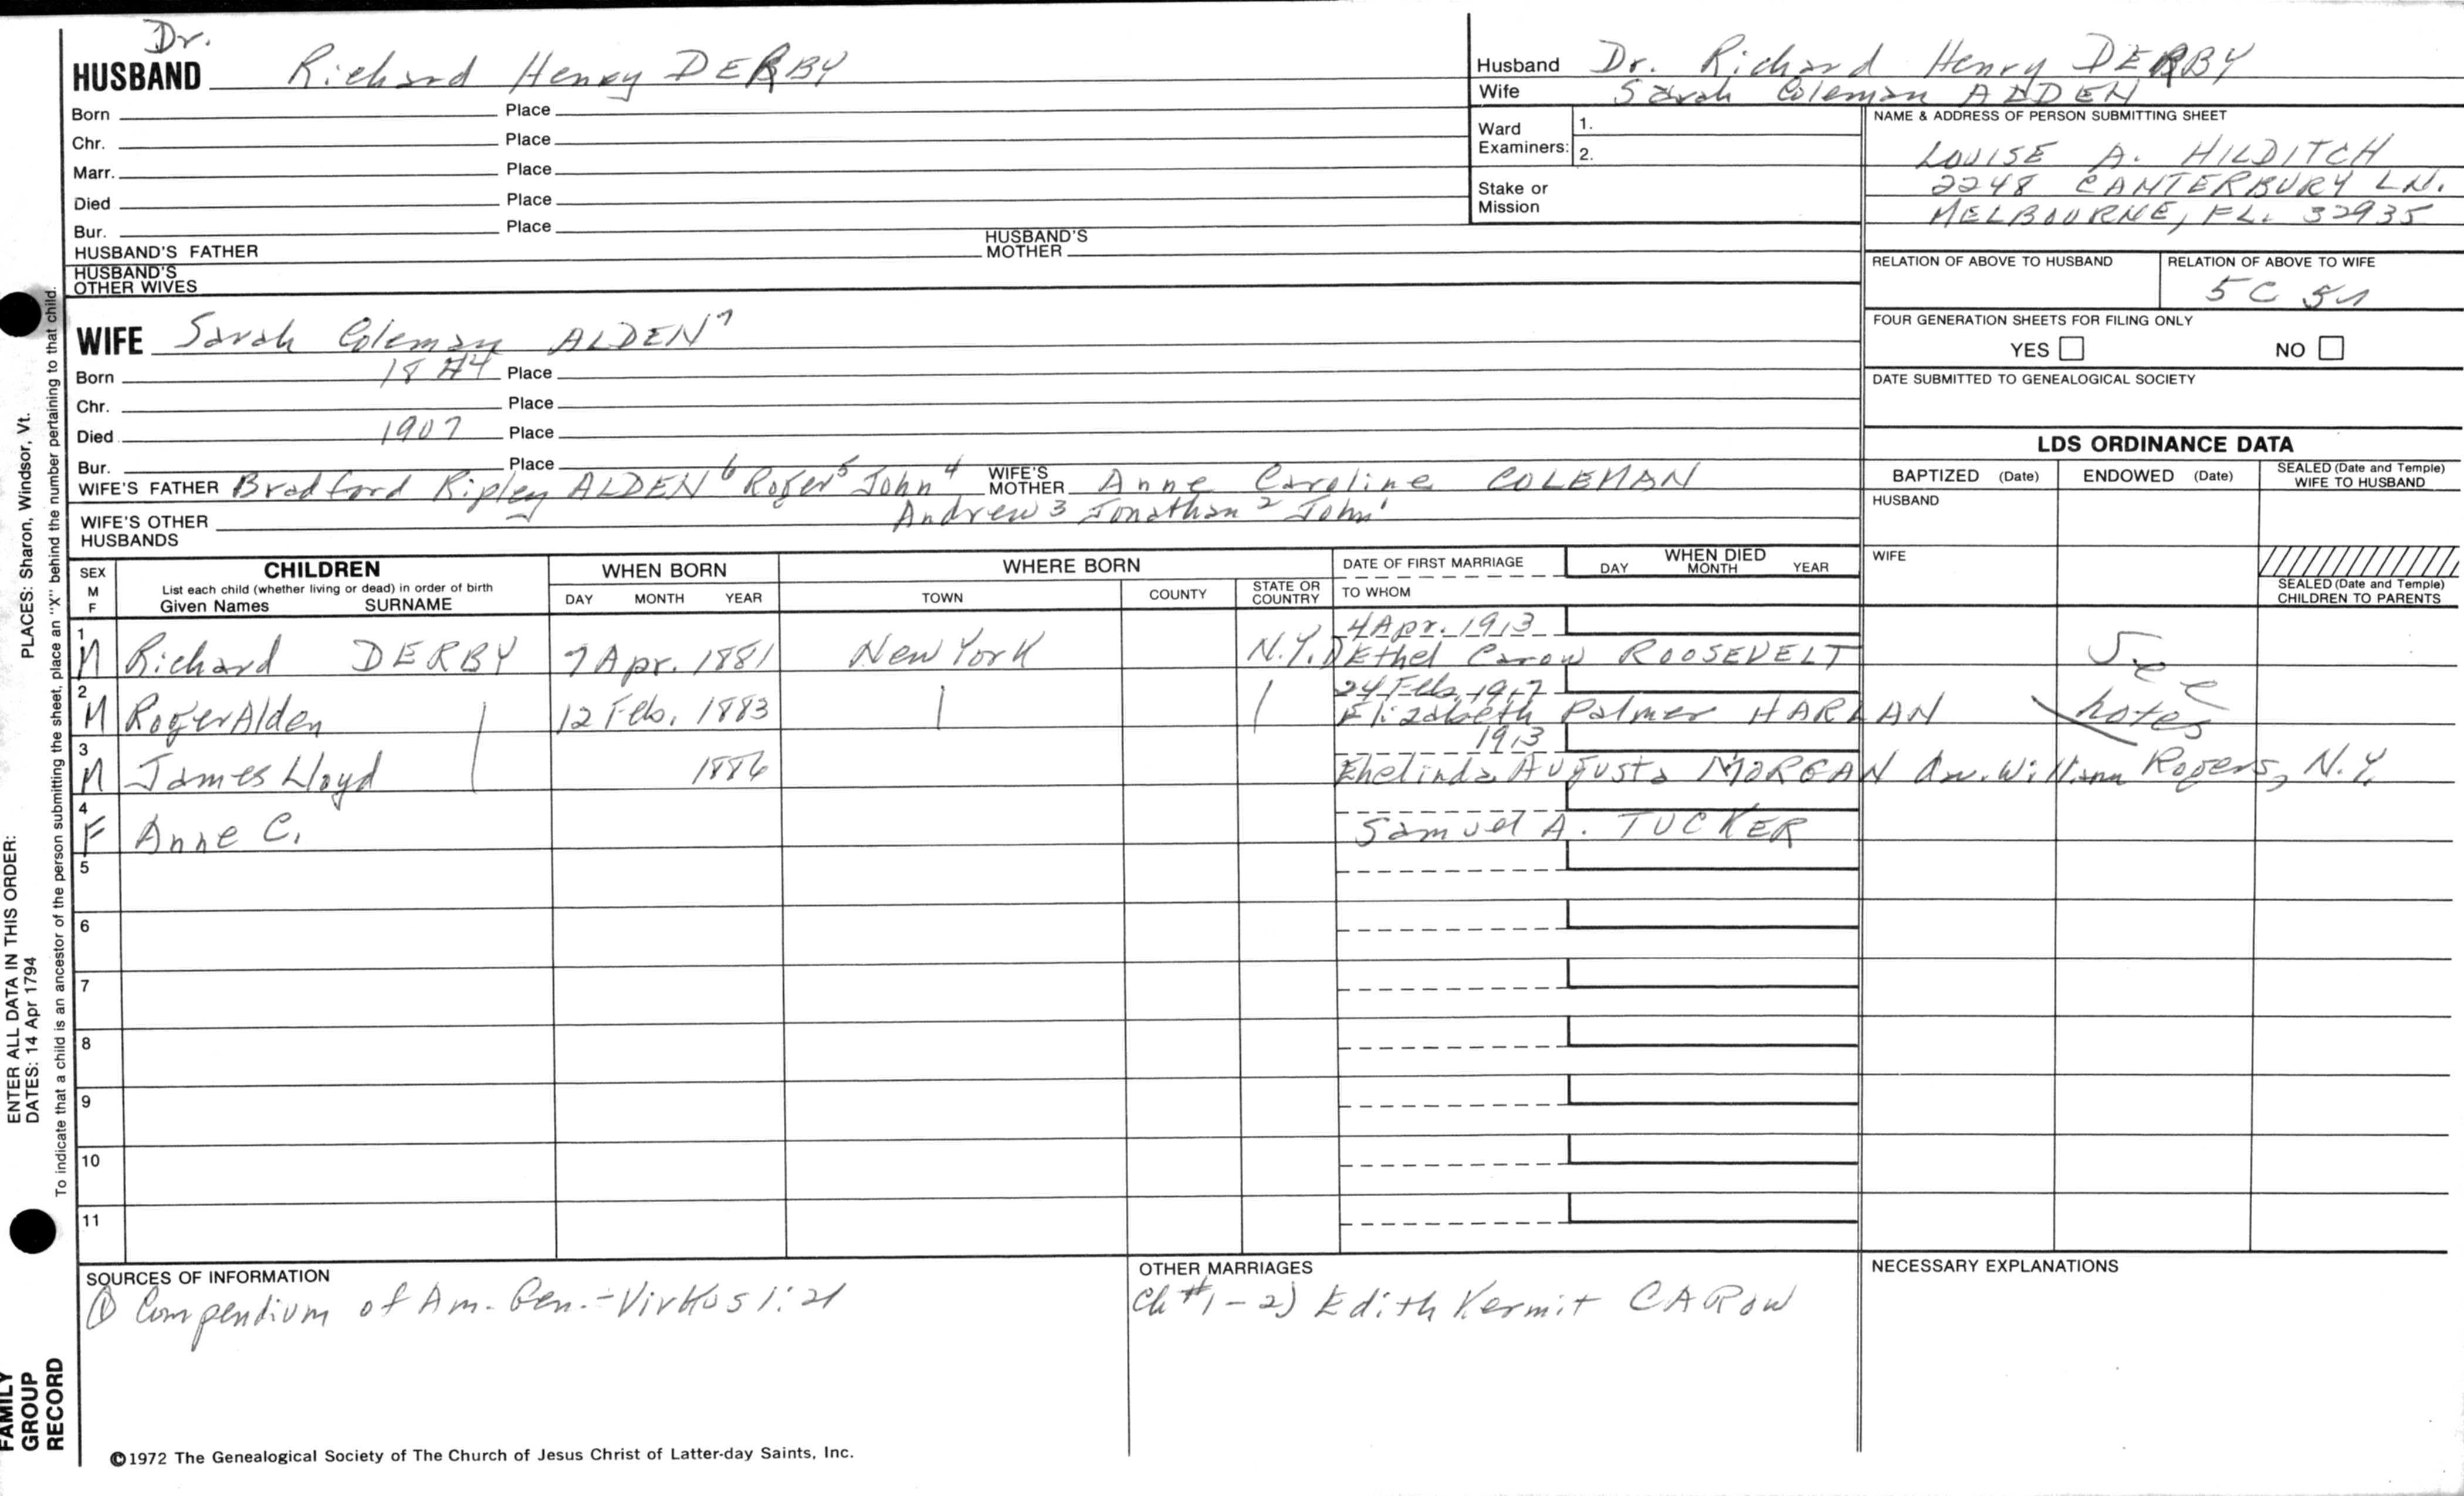 Dr.
HUSBAND Richard Henry DERBY
Born Place
Chr. Place
Marr. Place
Died Place
Bur. Place
HUSBAND'S FATHER HUSBAND'S MOTHER
HUSBAND'S OTHER WIVES
Husband Dr. Richard Henry DERBY
Wife Sarah Coleman ALDEN
Ward Examiners: 1.
2.
Stake or Mission
NAME & ADDRESS OF PERSON SUBMITTING SHEET
LOUISE A. HILDITCH
2248 CANTERBURY LN.
MELBOURNE, FL. 32935
RELATION OF ABOVE TO HUSBAND RELATION OF ABOVE TO WIFE
5 C
FOUR GENERATION SHEETS FOR FILING ONLY
YES NO
DATE SUBMITTED TO GENEALOGICAL SOCIETY
WIFE Sarah Coleman ALDEN7
Born Place
Chr. Place
Died 1907 Place
Bur. Place
WIFE'S FATHER Bradford Ripley ALDEN6 Roger5 John4 WIFE'S MOTHER Anne Caroline COLEMAN
Andrew3 Jonathan2 John1
WIFE'S OTHER HUSBANDS
LDS ORDINANCE DATA
BAPTIZED (Date) ENDOWED (Date) SEALED (Date and Temple) WIFE TO HUSBAND
HUSBAND
WIFE
SEALED (Date and Temple) CHILDREN TO PARENTS
SEX M F CHILDREN List each child (whether living or dead) in order of birth Given Names SURNAME
WHEN BORN DAY MONTH YEAR
WHERE BORN TOWN COUNTY STATE OR COUNTRY
DATE OF FIRST MARRIAGE TO WHOM
WHEN DIED DAY MONTH YEAR
4 Apr. 1913
1 M Richard DERBY 7 Apr. 1881 New York N.Y. 1) Ethel Carow ROOSEVELT See
24 Feb. 1917
2 M Roger Alden 12 Feb. 1883 Elizabeth Palmer HARLAN notes
1913
3 M James Lloyd 1886 Ehelinda Augusta MORGAN William Rogers, N.Y.
4 F Anne C. Samuel A. TUCKER
5
6
7
8
9
10
11
SOURCES OF INFORMATION
① Compendium of Am. Gen. - Virkus 1:21
OTHER MARRIAGES
Ch #1 - 2) Edith Kermit CAROW
NECESSARY EXPLANATIONS
©1972 The Genealogical Society of The Church of Jesus Christ of Latter-day Saints, Inc.
FAMILY GROUP RECORD
ENTER ALL DATA IN THIS ORDER:
DATES: 14 Apr 1794
PLACES: Sharon, Windsor, Vt.
To indicate that a child is an ancestor of the person submitting the sheet, place an "X" behind the number pertaining to that child.